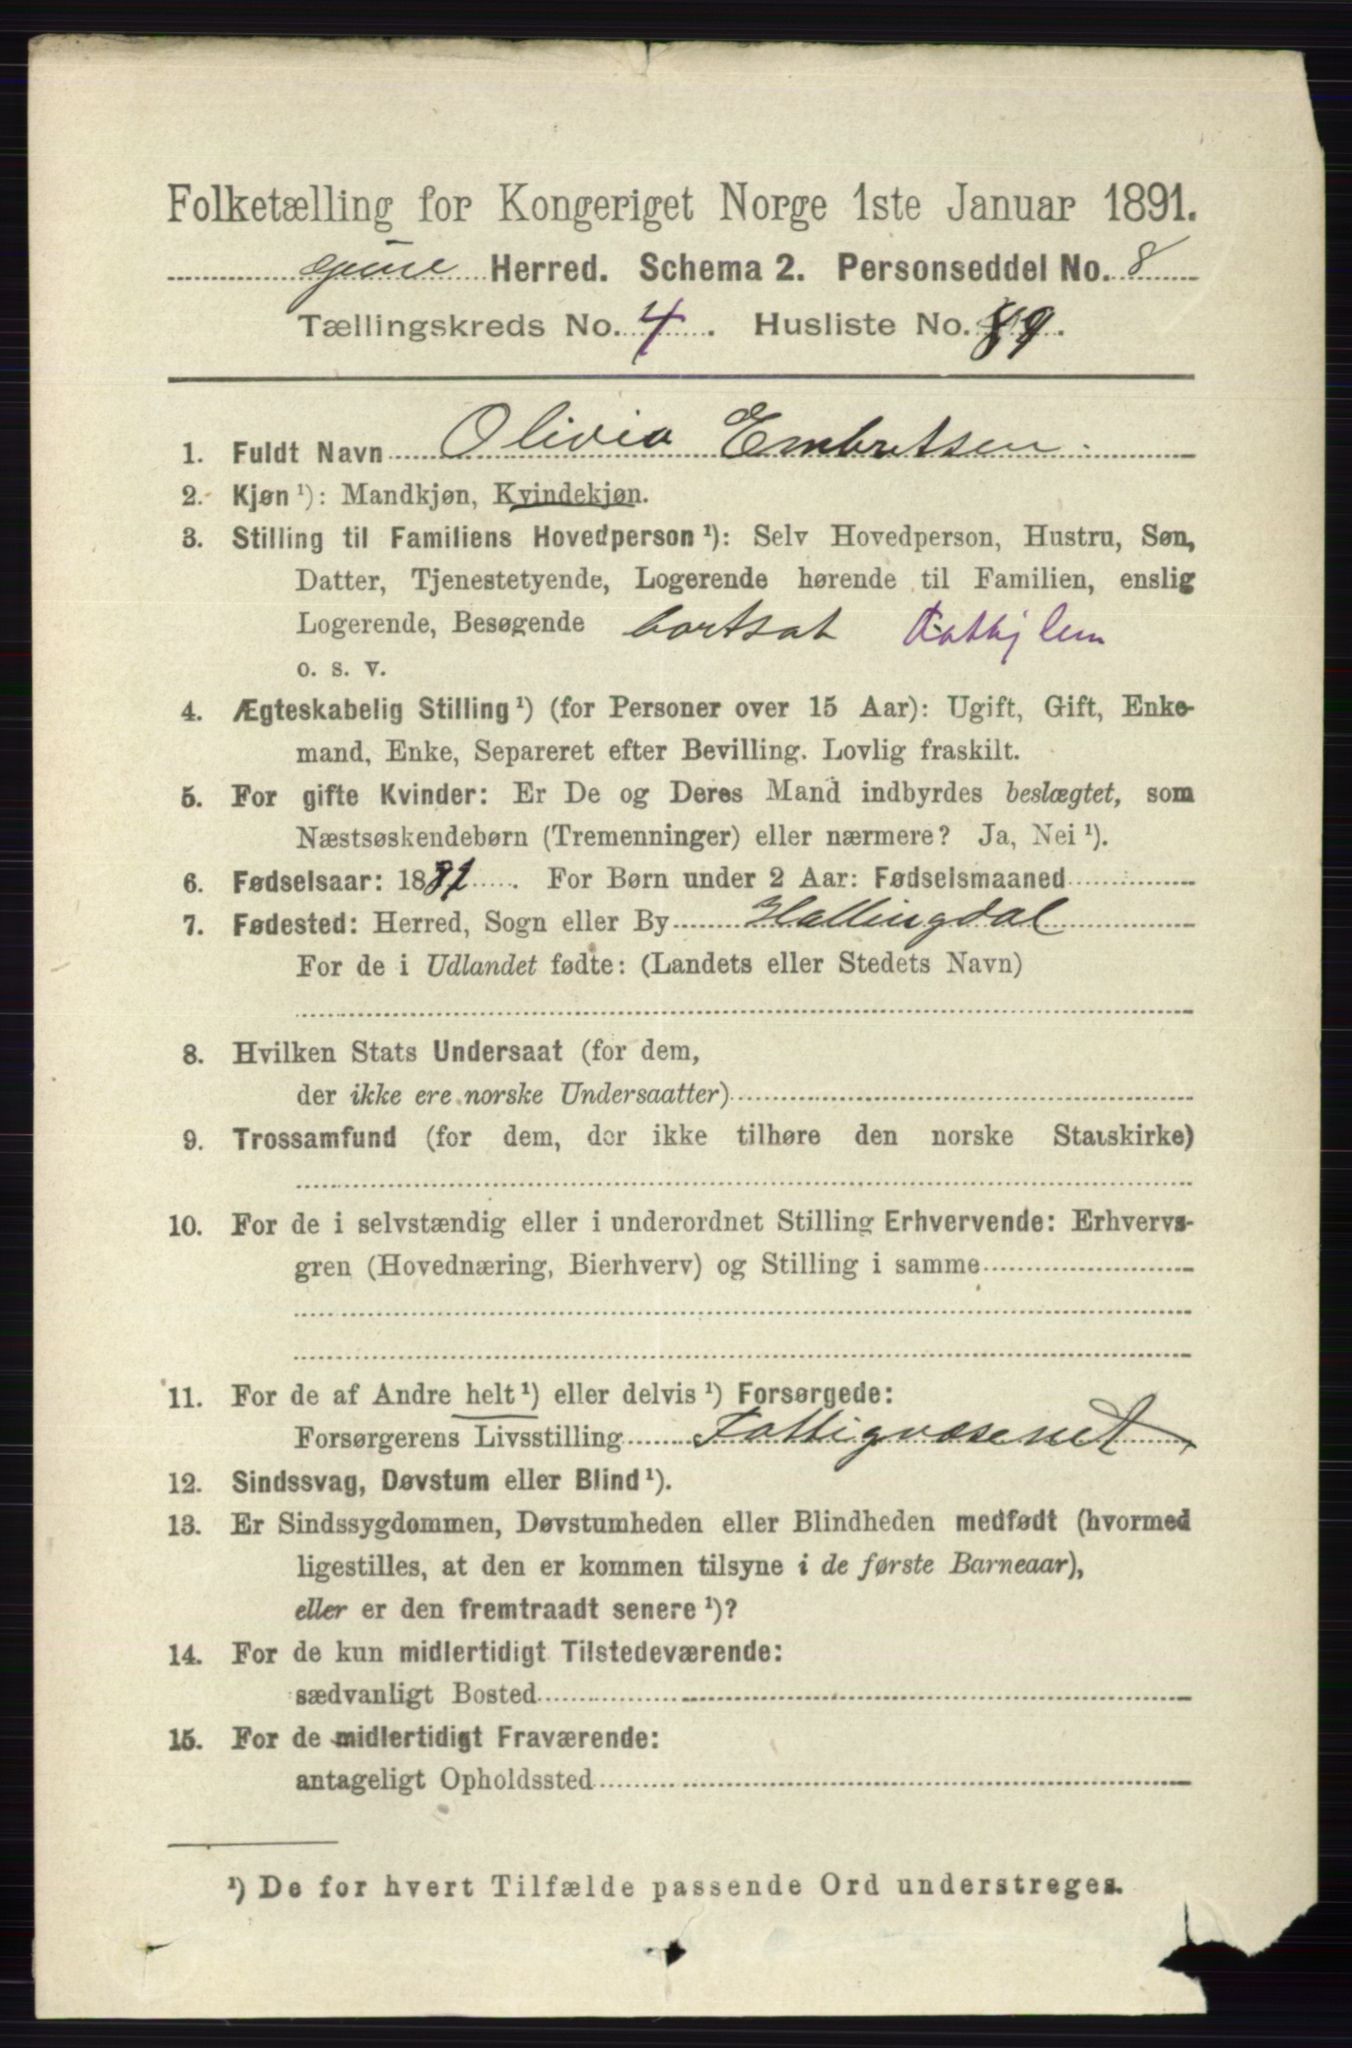 Folketælling for Kongeriget Norge 1ste Januar 1891.
Herred. Schema 2. Personseddel No. 8
Tællingskreds No. 4. Husliste No. 89.
1. Fuldt Navn Olivia Embretsen
2. Kjøn ¹): Mandkjøn, Kvindekjøn.
3. Stilling til Familiens Hovedperson ¹): Selv Hovedperson, Hustru, Søn,
Datter, Tjenestetyende, Logerende hørende til Familien, enslig
Logerende, Besøgende bortsat Fattiglem
o. s. v.
4. Ægteskabelig Stilling ¹) (for Personer over 15 Aar): Ugift, Gift, Enke-
mand, Enke, Separeret efter Bevilling. Lovlig fraskilt.
5. For gifte Kvinder: Er De og Deres Mand indbyrdes beslægtet, som
Næstsøskendebørn (Tremenninger) eller nærmere? Ja, Nei ¹).
6. Fødselsaar: 18 . For Børn under 2 Aar: Fødselsmaaned
7. Fødested: Herred, Sogn eller By Hallingdal
For de i Udlandet fødte: (Landets eller Stedets Navn)
8. Hvilken Stats Undersaat (for dem,
der ikke ere norske Undersaatter)
9. Trossamfund (for dem, der ikke tilhøre den norske Statskirke)
10. For de i selvstændig eller i underordnet Stilling Erhvervende: Erhvervs-
gren (Hovednæring, Bierhverv) og Stilling i samme
11. For de af Andre helt ¹) eller delvis ¹) Forsørgede:
Forsørgerens Livsstilling Fattigvæsenet
12. Sindssvag, Døvstum eller Blind ¹).
13. Er Sindssygdommen, Døvstumheden eller Blindheden medfødt (hvormed
ligestilles, at den er kommen tilsyne i de første Barneaar),
eller er den fremtraadt senere ¹)?
14. For de kun midlertidigt Tilstedeværende:
sædvanligt Bosted
15. For de midlertidigt Fraværende:
antageligt Opholdssted
¹) De for hvert Tilfælde passende Ord understreges.